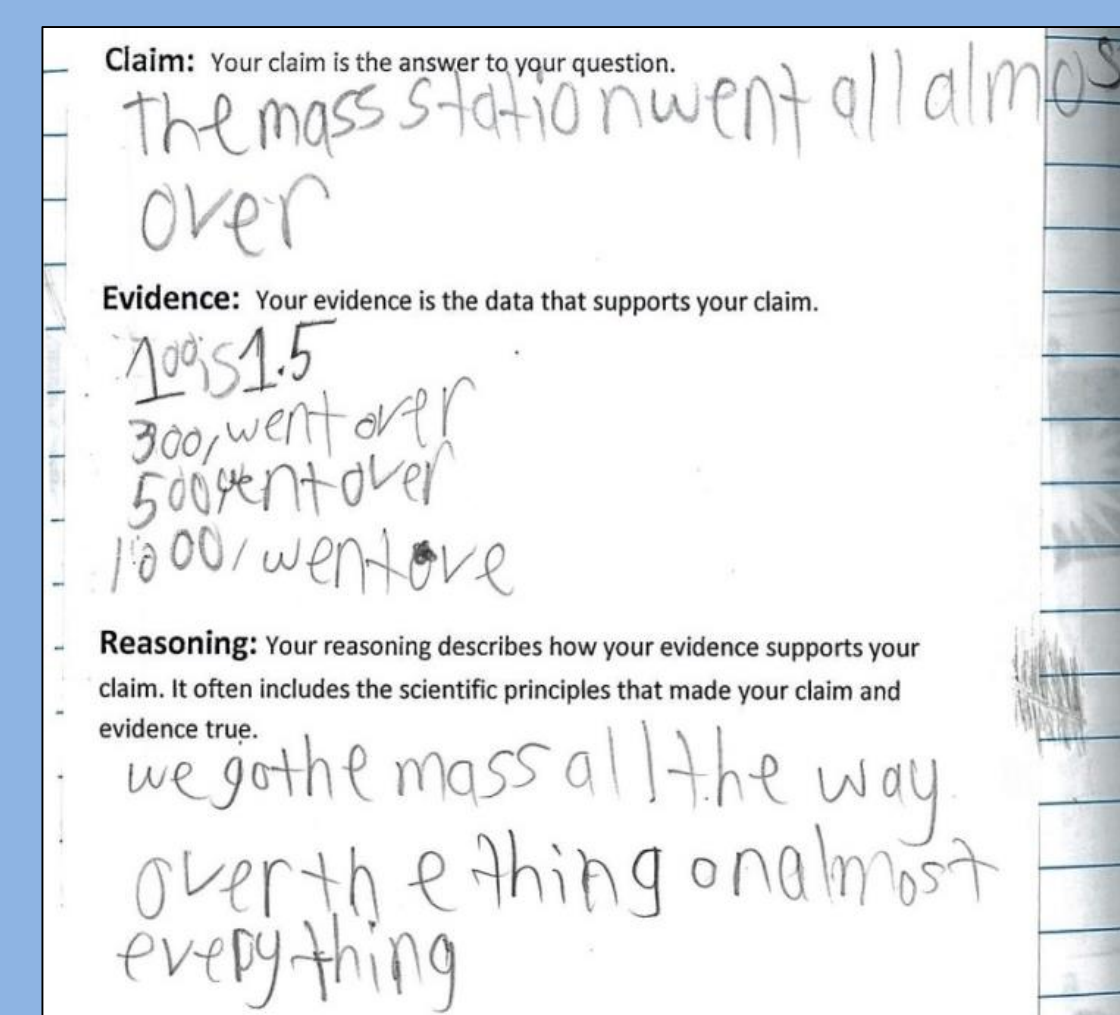 Claim: Your claim is the answer to your question.
the mass station went all almos
over
Evidence: Your evidence is the data that supports your claim.
100is1.5
300, went over
500 went over
1000, went ove
Reasoning: Your reasoning describes how your evidence supports your
claim. It often includes the scientific principles that made your claim and
evidence true.
we gothe mass all the way
over the thing on almost
everything